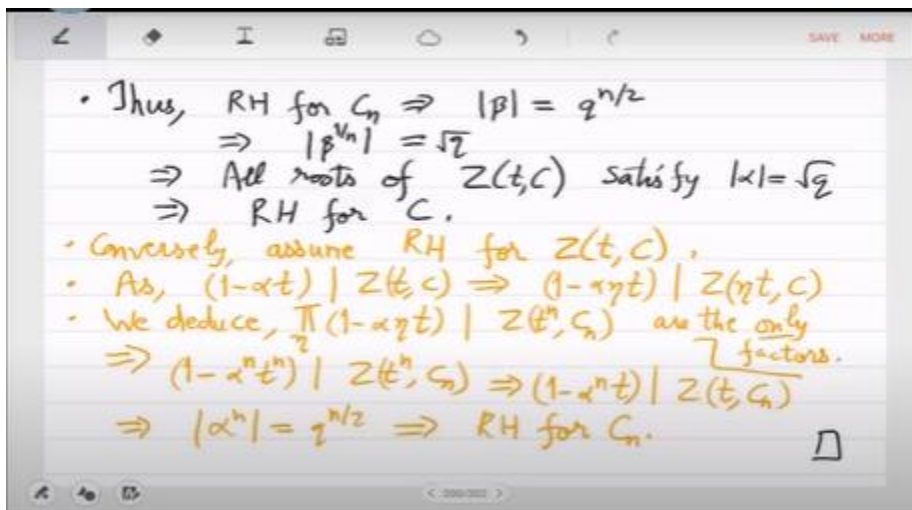 SAVE MORE
• Thus, RH for Cₙ ⇒ |β| = q^{n/2}
⇒ |β^{1/n}| = √q
⇒ All roots of Z(t,C) satisfy |α| = √q
⇒ RH for C.
• Conversely, assume RH for Z(t,C).
• As, (1-αt) | Z(t,C) ⇒ (1-αηt) | Z(ηt,C)
• We deduce, ∏_η (1-αηt) | Z(tⁿ,Cₙ) are the only factors.
⇒ (1-αⁿtⁿ) | Z(tⁿ,Cₙ) ⇒ (1-αⁿt) | Z(t,Cₙ)
⇒ |αⁿ| = q^{n/2} ⇒ RH for Cₙ.